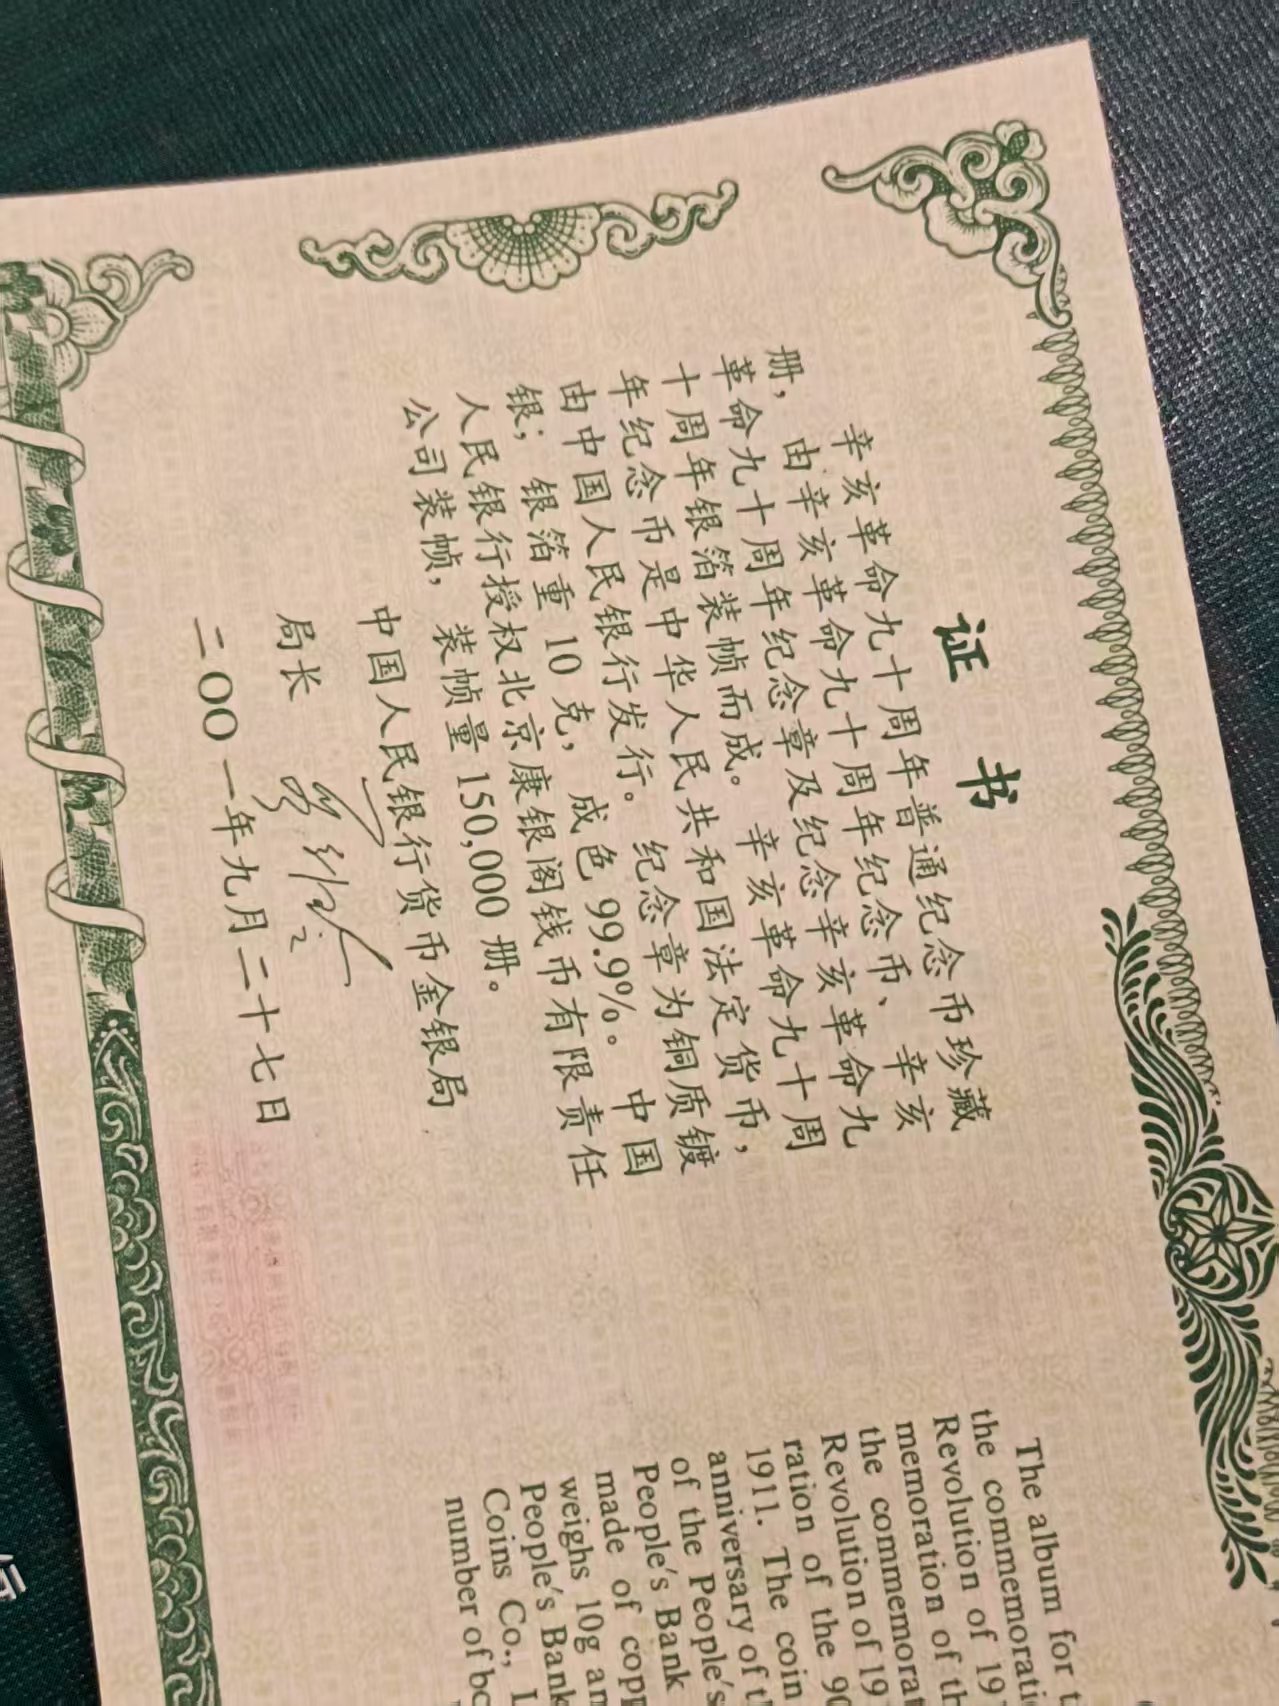 证 书
辛亥革命九十周年普通纪念币珍藏
册，由辛亥革命九十周年纪念币、辛亥
革命九十周年纪念章及纪念辛亥革命九
十周年银箔装帧而成。辛亥革命九十周
年纪念币是中华人民共和国法定货币，
由中国人民银行发行。纪念章为铜质镀
银；银箔重10克，成色99.9%。中国
人民银行授权北京康银阁钱币有限责任
公司装帧，装帧量150,000册。
中国人民银行货币金银局
局长
二OO一年九月二十七日
The album for
the commemorati
Revolution of 19
memoration of th
the commemorat
Revolution of 19
ration of the 90
1911. The coin
anniversary of t
of the People's
People's Bank
made of copp
weighs 10g an
People's Bank
Coins Co., L
number of bo